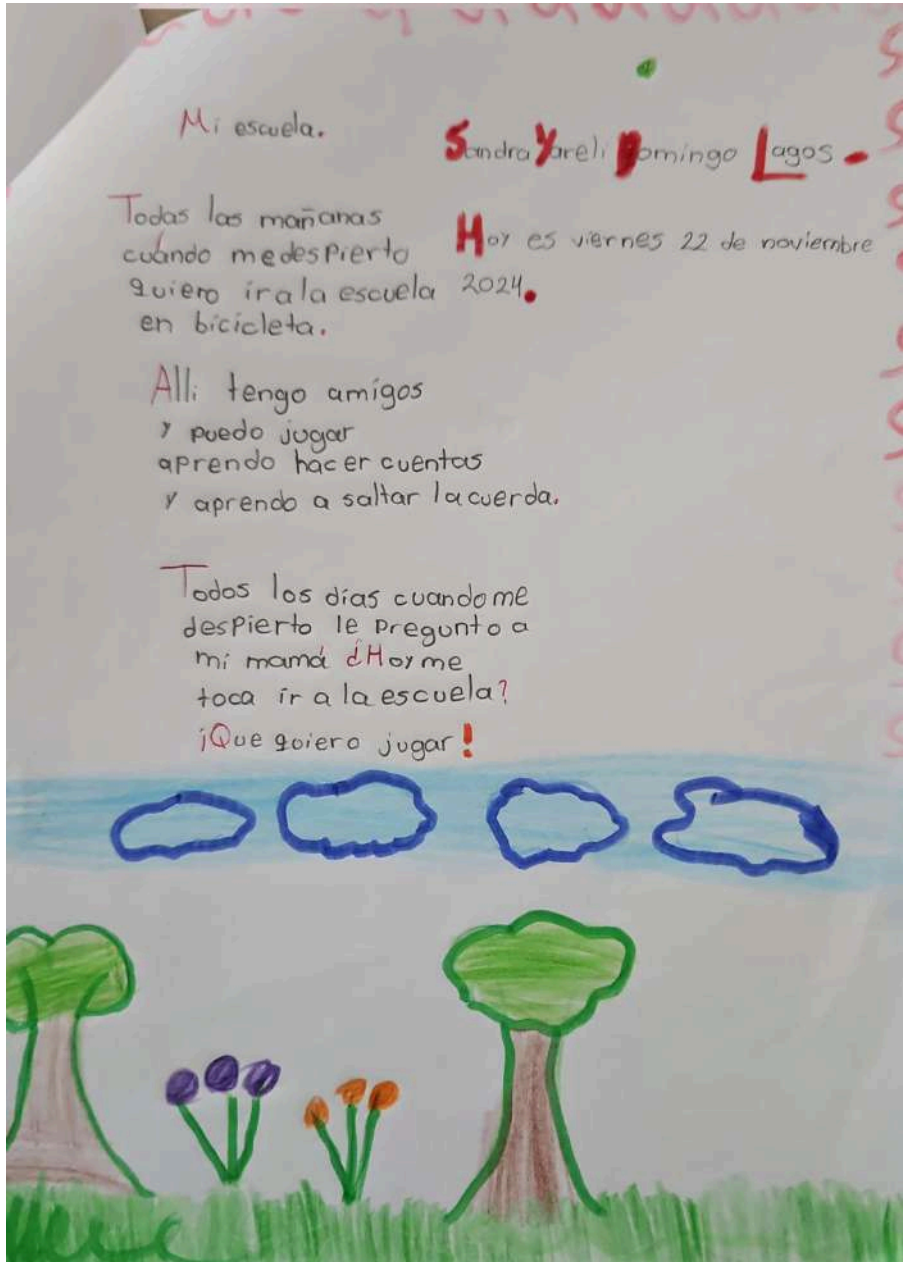 Mi escuela.
Sandra Yareli Domingo Lagos.
Hoy es viernes 22 de noviembre
2024.
Todas las mañanas
cuándo medespierto
quiero iralaescuela
en bicicleta.
Alli tengo amigos
y puedo jugar
aprendo hacer cuentas
y aprendo a saltar lacuerda.
Todos los días cuandome
despierto le pregunto a
mi mamá ¿Hoyme
toca ir a la escuela?
¡Que quiero jugar!